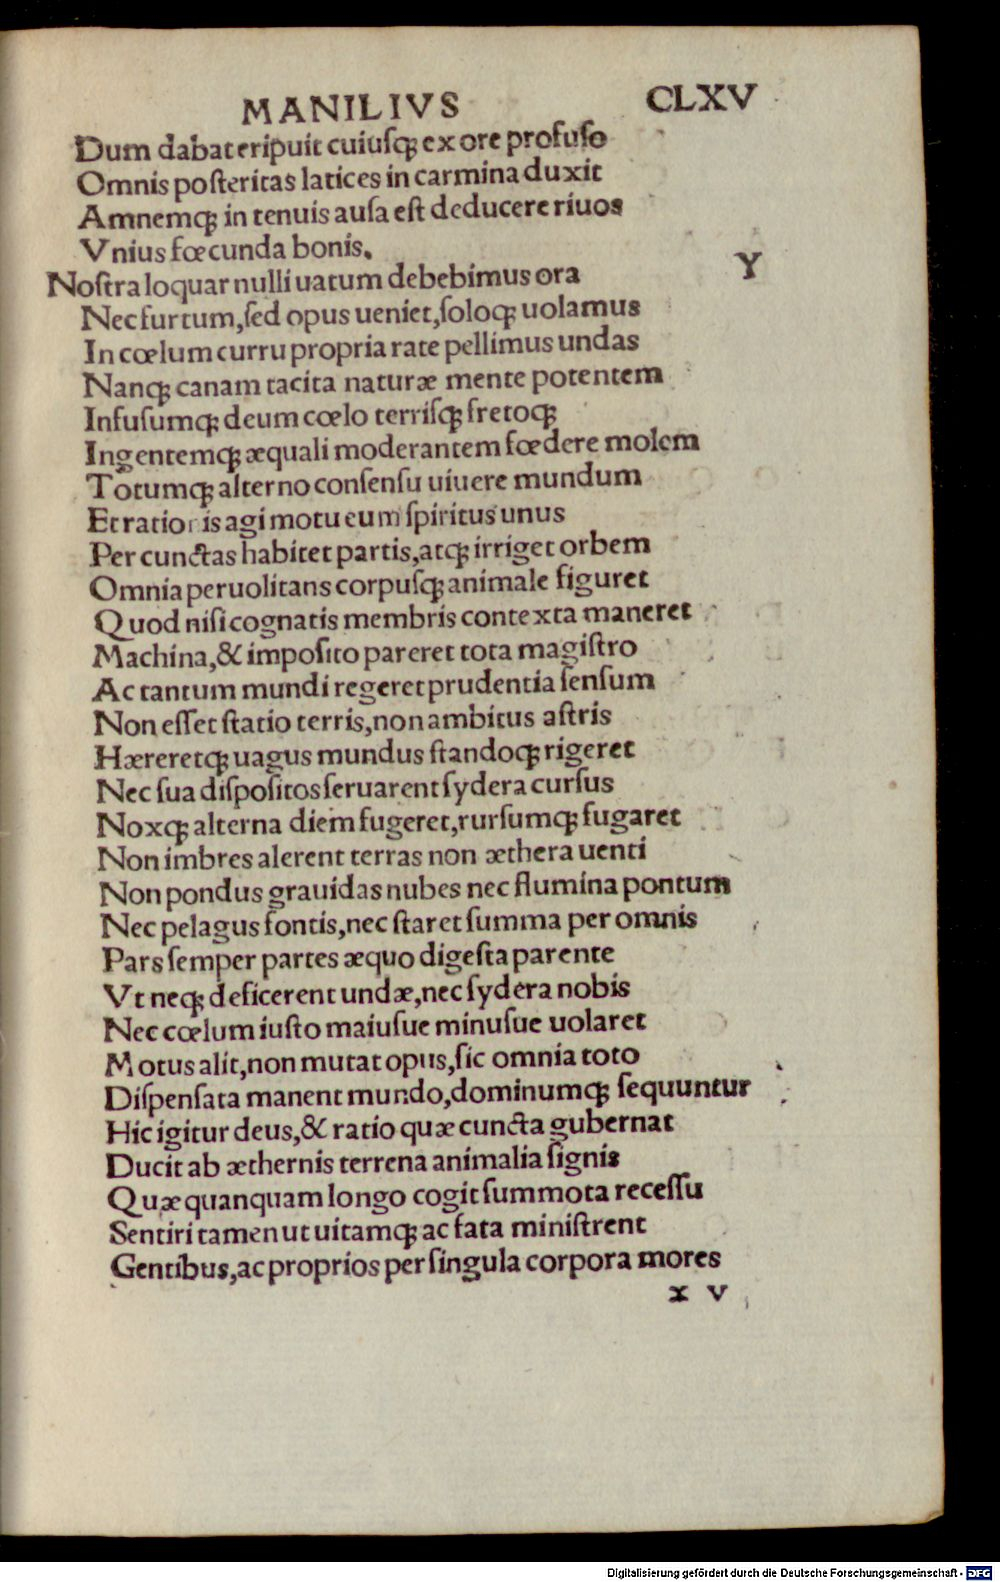 MANILIVS CLXV
Dum dabat eripuit cuiusq; ex ore profuso
Omnis posteritas latices in carmina duxit
Amnemq; in tenuis ausa est deducere riuos
Vnius fœcunda bonis.
Y
Nostra loquar nulli uatum debebimus ora
Nec furtum, sed opus ueniet, soloq; uolamus
In cœlum curru propria rate pellimus undas
Nanq; canam tacita naturæ mente potentem
Infusumq; deum cœlo terrisq; fretoq;
Ingentemq; æquali moderantem fœdere molem
Totumq; alterno consensu uiuere mundum
Et rationis agi motu eum spiritus unus
Per cunctas habitet partis, atq; irriget orbem
Omnia peruolitans corpusq; animale figuret
Quod nisi cognatis membris contexta maneret
Machina, & imposito pareret tota magistro
Ac tantum mundi regeret prudentia sensum
Non esset statio terris, non ambitus astris
Hæreretq; uagus mundus standoq; rigeret
Nec sua dispositos seruarent sydera cursus
Noxq; alterna diem fugeret, rursumq; fugaret
Non imbres alerent terras non æthera uenti
Non pondus grauidas nubes nec flumina pontum
Nec pelagus fontis, nec staret summa per omnis
Pars semper partes æquo digesta parente
Vt neq; deficerent undæ, nec sydera nobis
Nec cœlum iusto maiusue minusue uolaret
Motus alit, non mutat opus, sic omnia toto
Dispensata manent mundo, dominumq; sequuntur
Hic igitur deus, & ratio quæ cuncta gubernat
Ducit ab æthernis terrena animalia signis
Quæ quanquam longo cogit summota recessu
Sentiri tamen ut uitamq; ac fata ministrent
Gentibus, ac proprios per singula corpora mores
x v
Digitalisierung gefördert durch die Deutsche Forschungsgemeinschaft - DFG